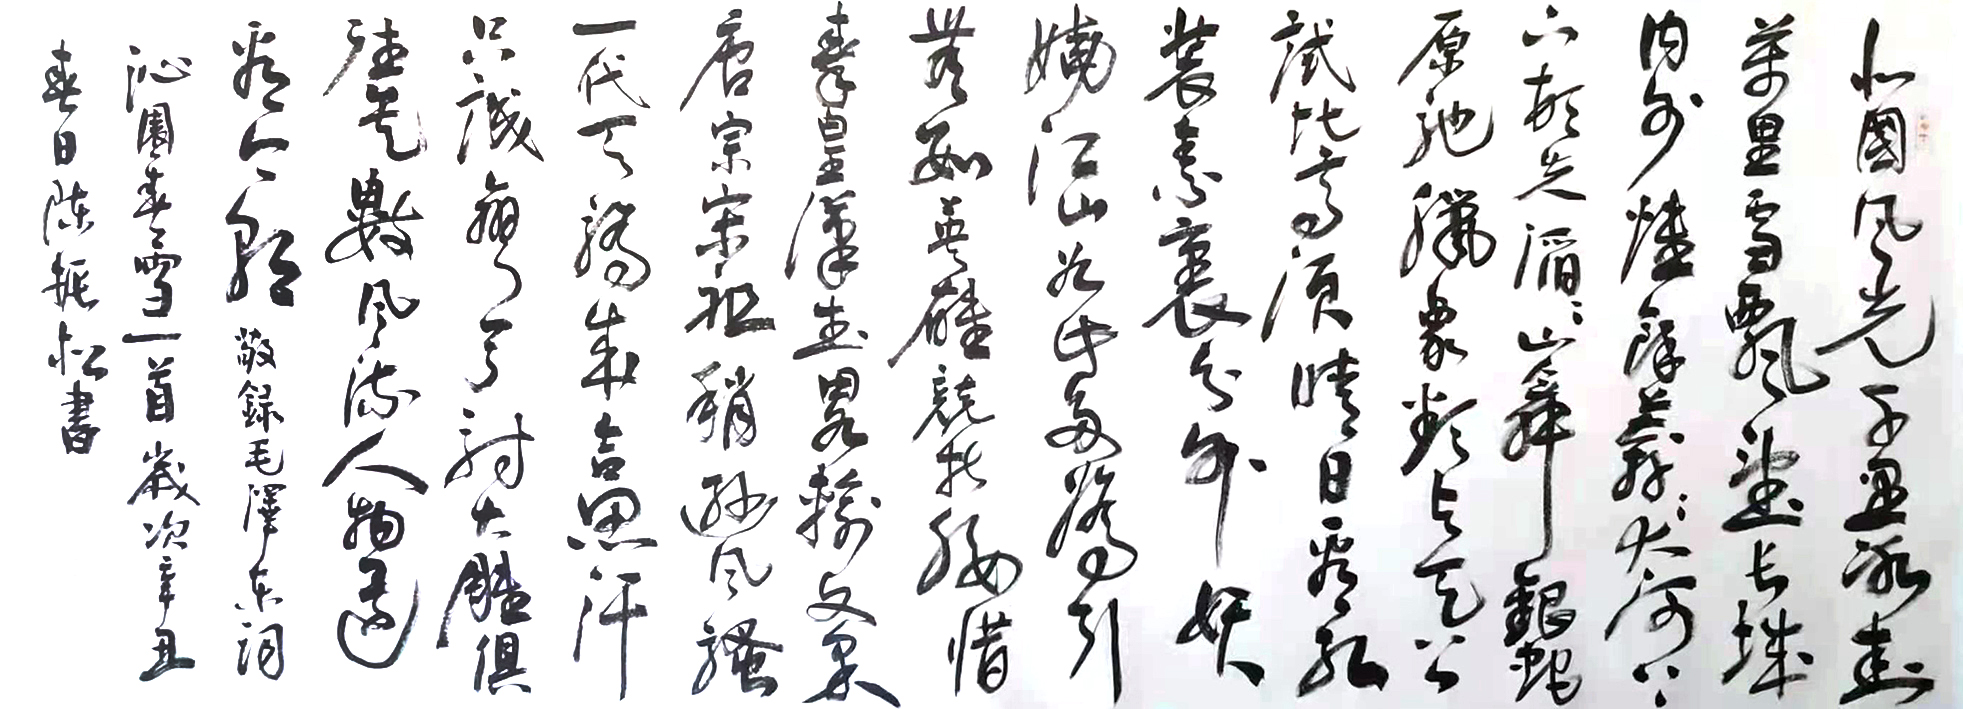 北國风光千里冰封
萬里雪飄望長城
内外惟餘莽〻大河上
下頓失滔〻山舞銀蛇
原馳臘象欲與天公
試比高須晴日看紅
裝素裹分外妖
嬈江山如此多嬌引
無數英雄競折腰惜
秦皇漢武略輸文采
唐宗宋祖稍遜风騷
一代天驕成吉思汗
只識彎弓射大雕俱
往矣數风流人物還
看今朝 敬録毛澤東詞
沁園春雪一首歲次辛丑
春日陳振松書